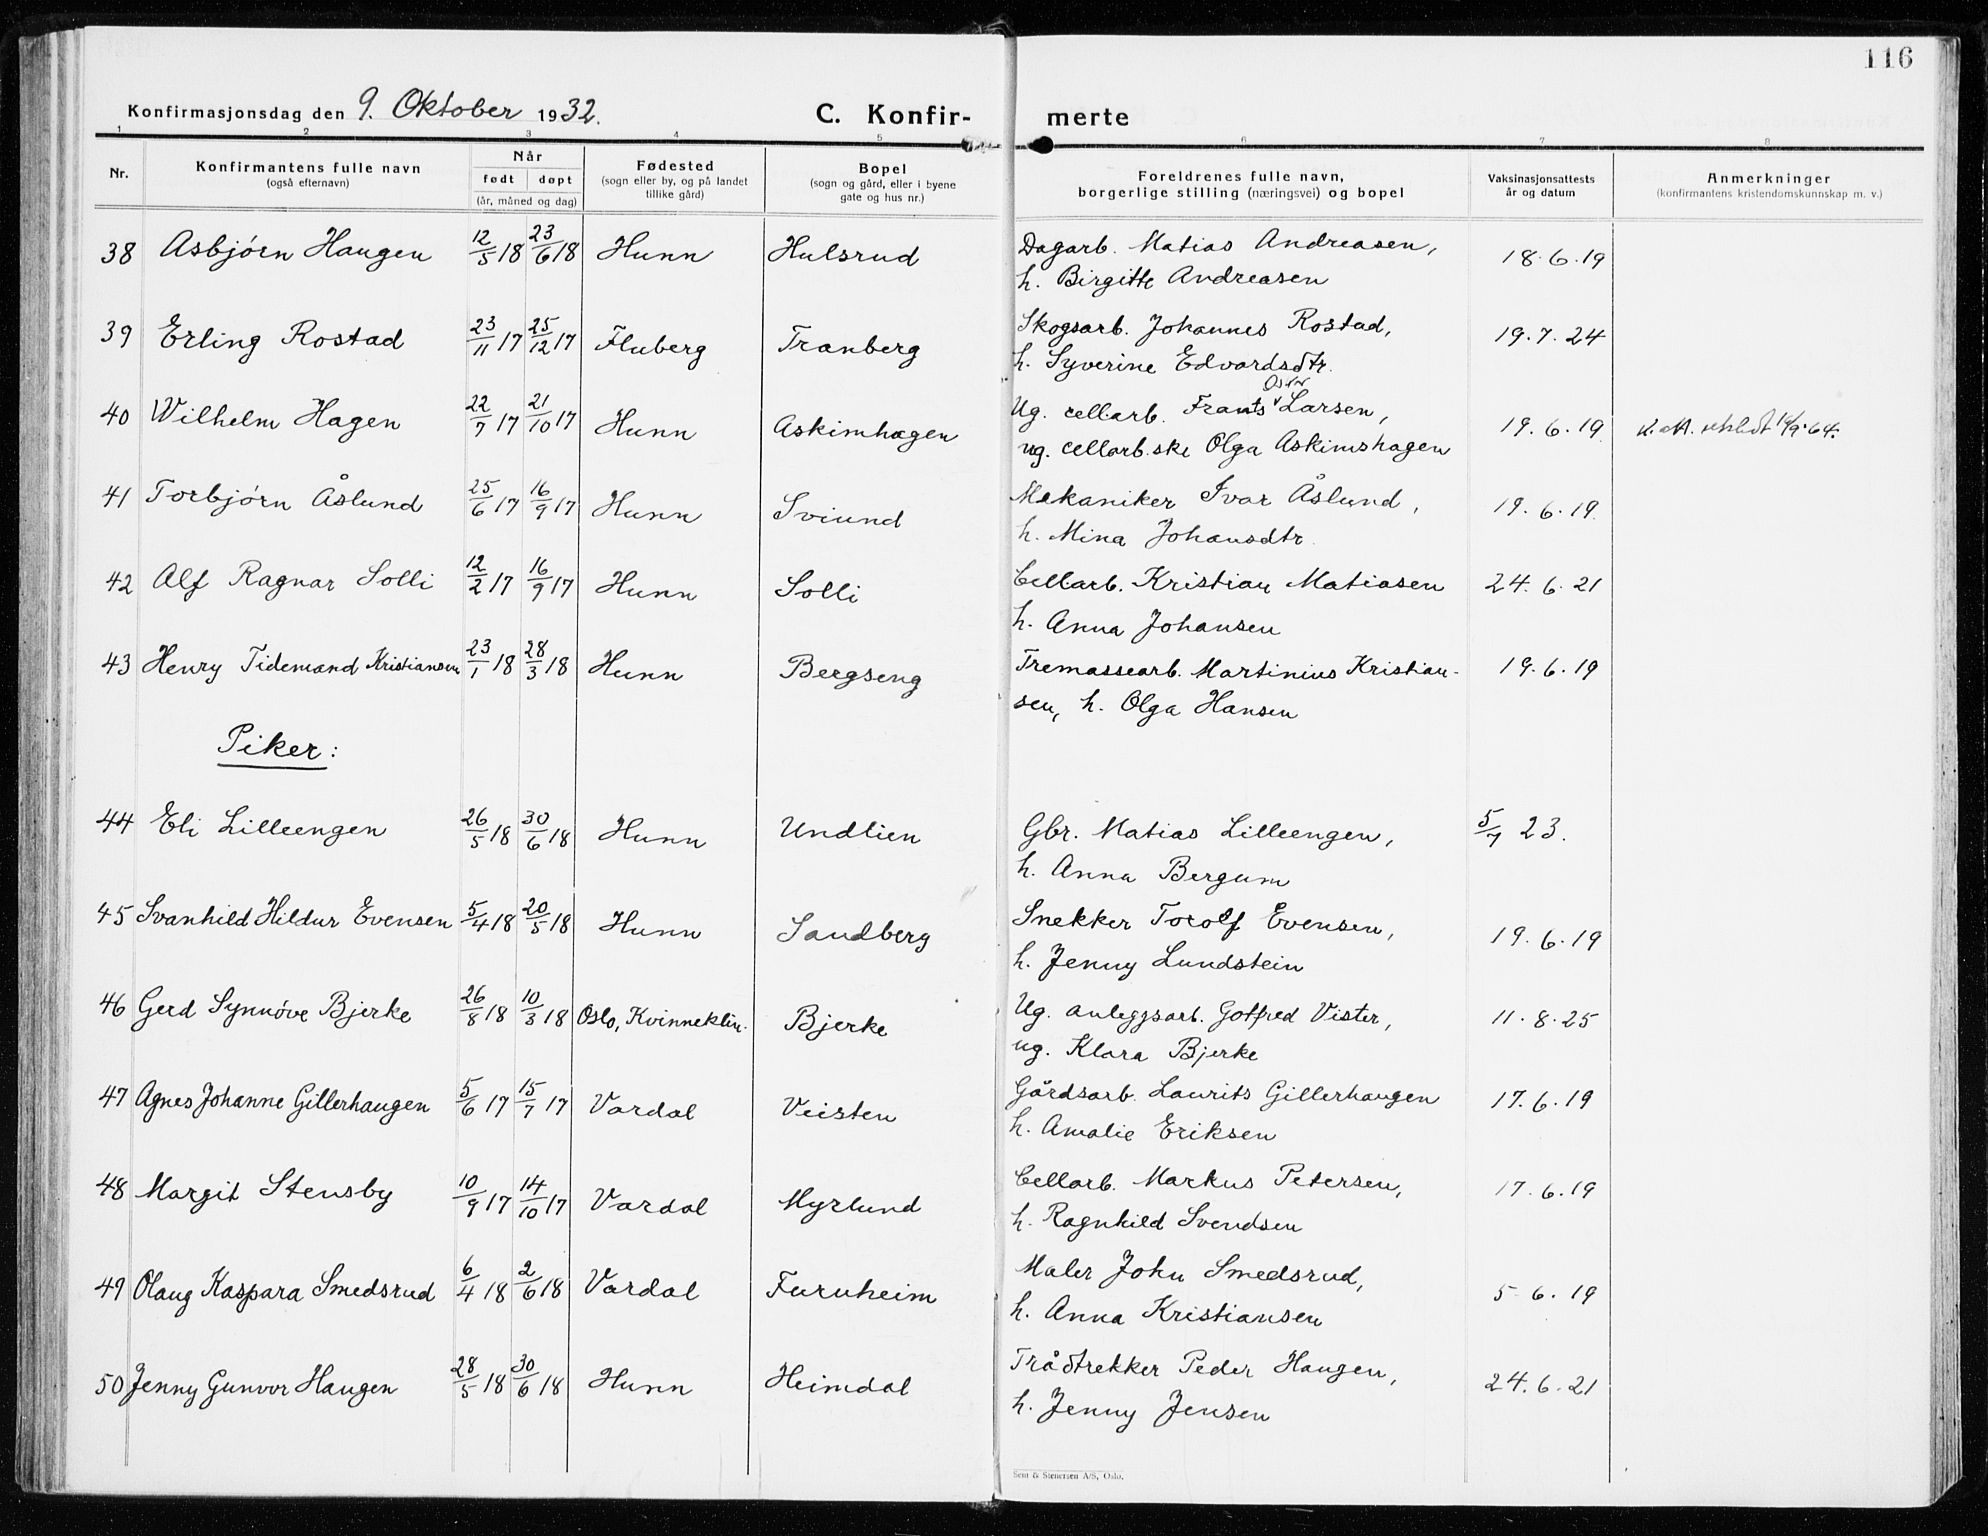 116
Konfirmasjonsdag den 9. Oktober 1932.
C. Konfir- merte
1 2 3 4 5 6 7 8
Nr. Konfirmantens fulle navn (også efternavn) Når født døpt (år, måned og dag) Fødested (sogn eller by, og på landet tillike gård) Bopel (sogn og gård, eller i byene gate og hus nr.) Foreldrenes fulle navn, borgerlige stilling (næringsvei) og bopel Vaksinasjonsattests år og datum Anmerkninger (konfirmantens kristendomskunnskap m. v.)
38 Asbjørn Haugen 12/5 18 23/6 18 Hunn Hulsrud Dagarb. Matias Andreasen, 18.6.19
h. Birgitte Andreasen
39 Erling Rostad 23/11 17 25/12 17 Fluberg Tranberg Skogsarb. Johannes Rostad, 19.7.24
h. Syverine Edvardsdtr.
40 Wilhelm Hagen 22/7 17 21/10 17 Hunn Askimhagen Ug. cellarb. Frants Larsen, 19.6.19
ug. cellarb.ske Olga Askimshagen
41 Torbjørn Åslund 25/6 17 16/9 17 Hunn Sviund Mekaniker Ivar Åslund, 19.6.19.
h. Mina Johansdtr.
42 Alf Ragnar Solli 12/2 17 16/9 17 Hunn Solli Cellarb. Kristian Matiasen 24.6.21
h. Anna Johansen
43 Henry Tidemand Kristiansen 23/1 18 28/3 18 Hunn Bergseng Tremassearb. Martinius Kristian- 19.6.19
sen, h. Olga Hansen
Piker:
44 Eli Lilleengen 26/5 18 30/6 18 Hunn Undlien Gbr. Matias Lilleengen, 5/7 23.
h. Anna Bergum
45 Svanhild Hildur Evensen 5/4 18 20/5 18 Hunn Sandberg Snekker Torolf Evensen, 19.6.19
h. Jenny Lundstein
46 Gerd Synnöve Bjerke 26/8 18 10/3 18 Oslo, Kvinneklin. Bjerke Ug. anleggsarb. Gotfred Vister, 11.8.25
ug. Klara Bjerke
47 Agnes Johanne Gillerhaugen 5/6 17 15/7 17 Vardal Veisten Gårdsarb. Laurits Gillerhaugen 17.6.19
h. Amalie Eriksen
48 Margit Stensby 10/9 17 14/10 17 Vardal Myrlund Cellarb. Markus Petersen, 17.6.19
h. Ragnhild Svendsen
49 Olaug Kaspara Smedsrud 6/4 18 2/6 18 Vardal Furuheim Maler John Smedsrud, 5.6.19
h. Anna Kristiansen
50 Jenny Gunvor Haugen 28/5 18 30/6 18 Hunn Heimdal Trådtrekker Peder Haugen, 24.6.21
h. Jenny Jensen
Sem & Stenersen A/S, Oslo.